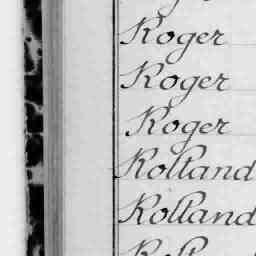 Roger
Roger
Roger
Rolland
Rolland